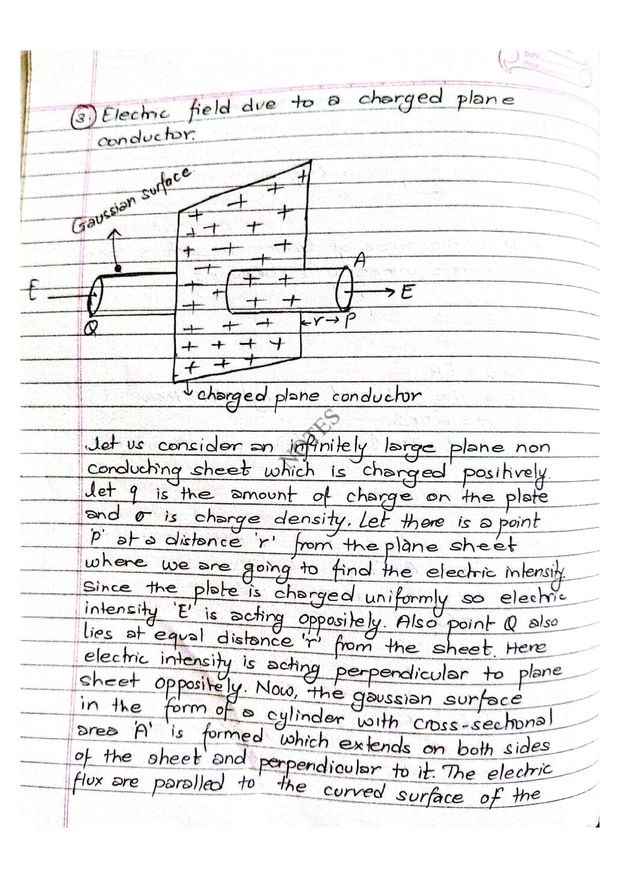 Date
Page
3. Electric field due to a charged plane
conductor.
Gaussian surface
A
E
E
Q
r
P
charged plane conductor
NOTES
let us consider an infinitely large plane non
conducting sheet which is charged positively.
let q is the amount of charge on the plate
and σ is charge density. Let there is a point
'P' at a distance 'r' from the plane sheet
where we are going to find the electric intensity.
Since the plate is charged uniformly so electric
intensity 'E' is acting oppositely. Also point Q also
lies at equal distance 'r' from the sheet. Here
electric intensity is acting perpendicular to plane
sheet oppositely. Now, the gaussian surface
in the form of a cylinder with cross-sectional
area 'A' is formed which extends on both sides
of the sheet and perpendicular to it. The electric
flux are paralled to the curved surface of the